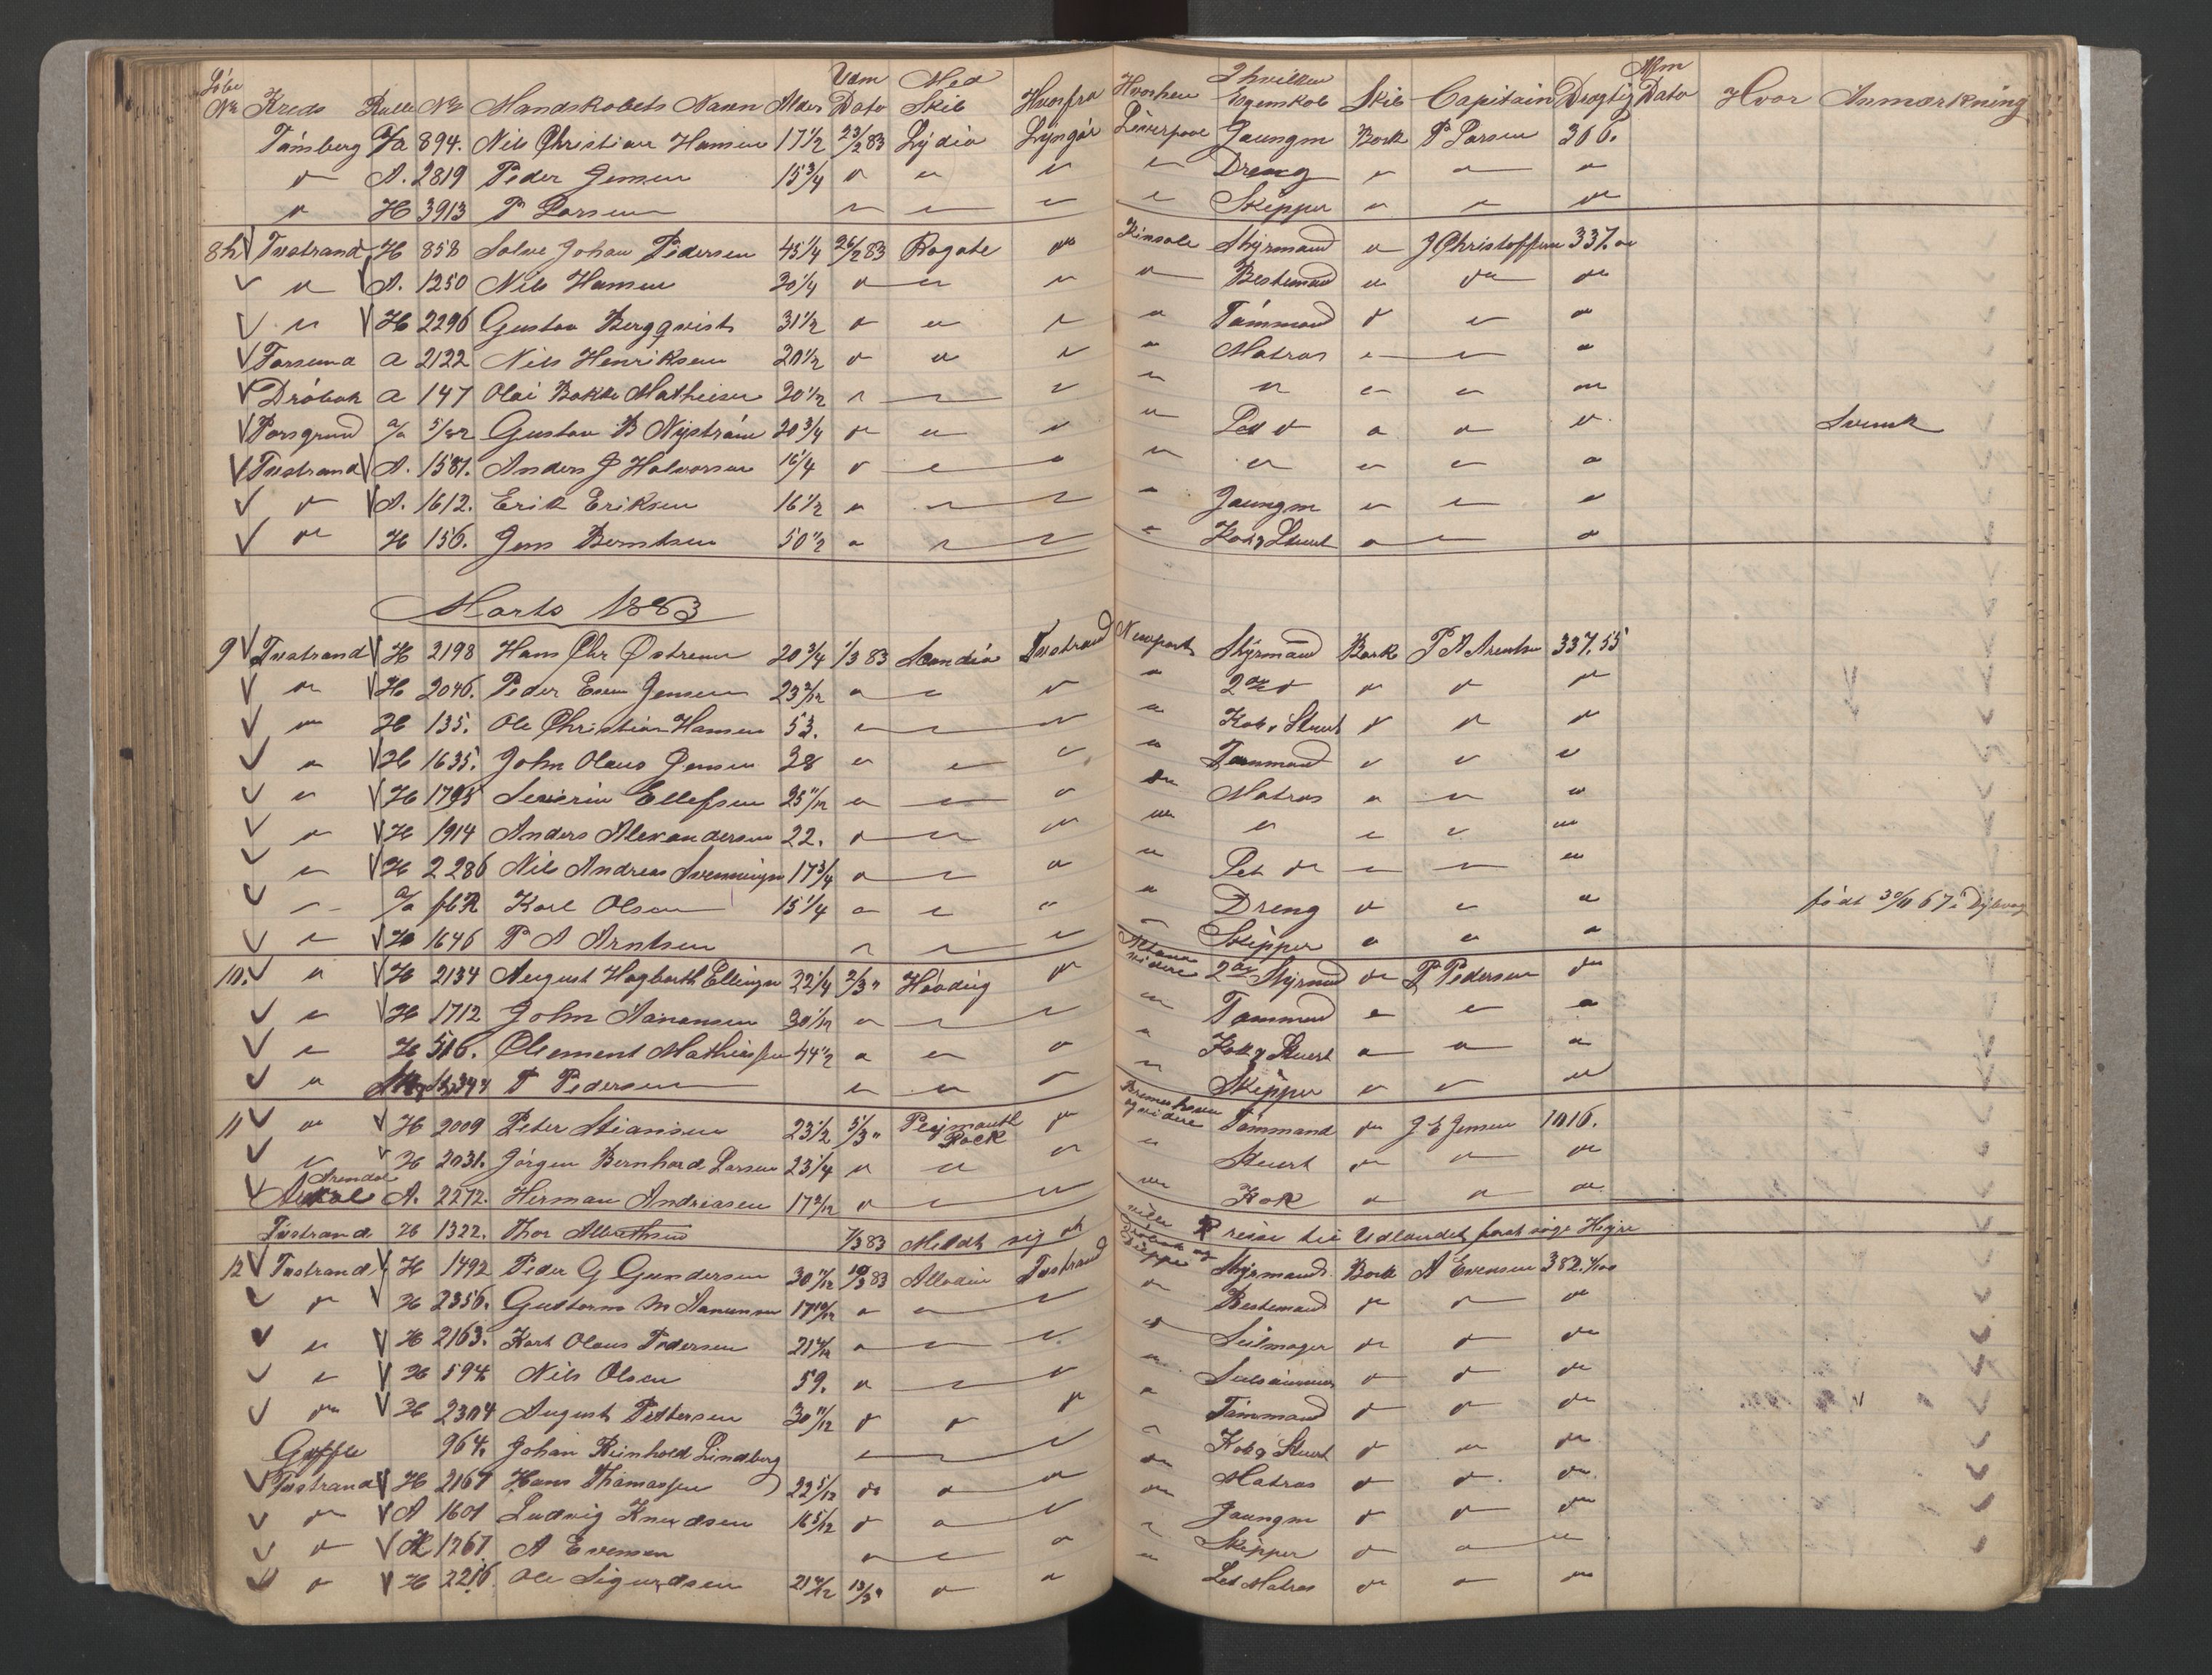 Löbe No Kreds Rulle No Mandskabets Navn Alder Udm Dato Med Skib Hvorfra Hvorhen I hvilken Egenskab Skib Capitain Drægtig Afm Dato Hvor Anmærkning
Tömsberg 894. Nils Christian Hansen 17 1/2 23/2 83 Lydia Lyngör Liverpool Jaungm Bark P Larsen 366.
" A. 2819 Peder Jensen 15 3/4 " " " " Dreng " " "
" H 3913 P Larsen " " " " Skipper " " "
8 h Tvestrand H 858 Salve Johan Pedersen 45 1/4 26/2 83 Rogate " Kinsale Styrmand " J Christoffersen 337.00
" A. 1250 Nils Hansen 30 1/4 " " " " Bestemand " " "
" H 2296 Gustav Bergqvist 31 1/2 " " " " Tömmand " " "
Farsund a 2122 Nils Henriksen 20 1/2 " " " " Matros " " "
Dröbak a 147 Olai Bakke Mathiesen 20 1/2 " " " " " " " "
Porsgrund a/a Gustav B Nyström 20 3/4 " " " " Let " " " " Svensk
Tvestrand A. 1581. Anders J Halvorsen 16 1/4 " " " " " " " "
" A. 1612. Erik Eriksen 16 1/2 " " " " Jaungm " " "
" H 156. Jens Berntsen 50 1/2 " " " " Kok & Stuert " " "
Marts 1883
9 Tvestrand H 2198 Hans Chr Østrem 20 3/4 1/3 83 Scandia Tvestrand Newport Styrmand Bark P A Arentsen 337.55
" H 2046. Peder Jensen 23 2/12 " " " " 2den " " " "
" H 135. Ole Christian Hansen 53. " " " " Kok & Stuert " " "
" H 1635. John Olaus Jensen 28 " " " " Tømmand " " "
" H 1795 Severin Ellefsen 25 11/12 " " " " Matros " " "
" H 1914 Anders Alexandersen 22. " " " " " " " "
" H 2286 Nils Andreas Svenningsen 17 3/4 " " " " Let " " " "
" a/a Karl Olsen 15 1/4 " " " " Dreng " " " födt 30/11 67 i Dybvag
" H 1646 P A Arntsen " " " " Skipper " " "
10. " H 2134 August Hagbarth Ellingsen 22 1/4 2/3 " Høvding " Altona videre 2den Styrmd " P Pedersen "
" H 1712 John Aanonsen 30 1/12 " " " " Tømmand " " "
" H 516. Clement Mathiassen 44 1/2 " " " " Kok & Stuert " " "
" P Pedersen " " " " Skipper " " "
11 " H 2009 Peter Stiansen 23 1/2 5/3 " Plymouth Rock " Bremerhaven og videre Tömmand " J E Jensen 1016.
" H 2031. Jörgen Bernhard Larsen 23 1/4 " " " " Stuert " " "
Arendal A. 2272. Herman Andreasen 17 2/12 " " " " Kok " " "
Tvestrand H 1322. Thor Albrethsen 7/3 83 Meldt sig at ville reise til Udlandet for at søge Hyre
12 Tvestrand H 1492 Peder G Gundersen 30 11/12 10/3 83 Alladin Tvestrand Dröbak og Dieppe Styrmand Bark A Evensen 382.
" H 2356. Guttorm M Aanensen 17 10/12 " " " " Bestemand " " "
" H 2163. Karl Olaus Pedersen 21 4/12 " " " " Seilmager " " "
" H 594 Nils Olsen 59. " " " " " " "
" H 2304 August Pettersen 30 11/12 " " " " Tömmand " " "
Geffle 964. Johan Reinhold Lindberg " " " " Kok & Stuert " " "
Tvestrand H 2167 Hans Thomassen 22 5/12 " " " " Matros " " "
" A 1601 Ludvig Knudsen 16 5/12 " " " " Jaungm " " "
" H 1267 A Evensen " " " " Skipper " " "
" H 2216. Ole Sigurdsen 21 4/12 13/3 " " " " Let Matros " " "